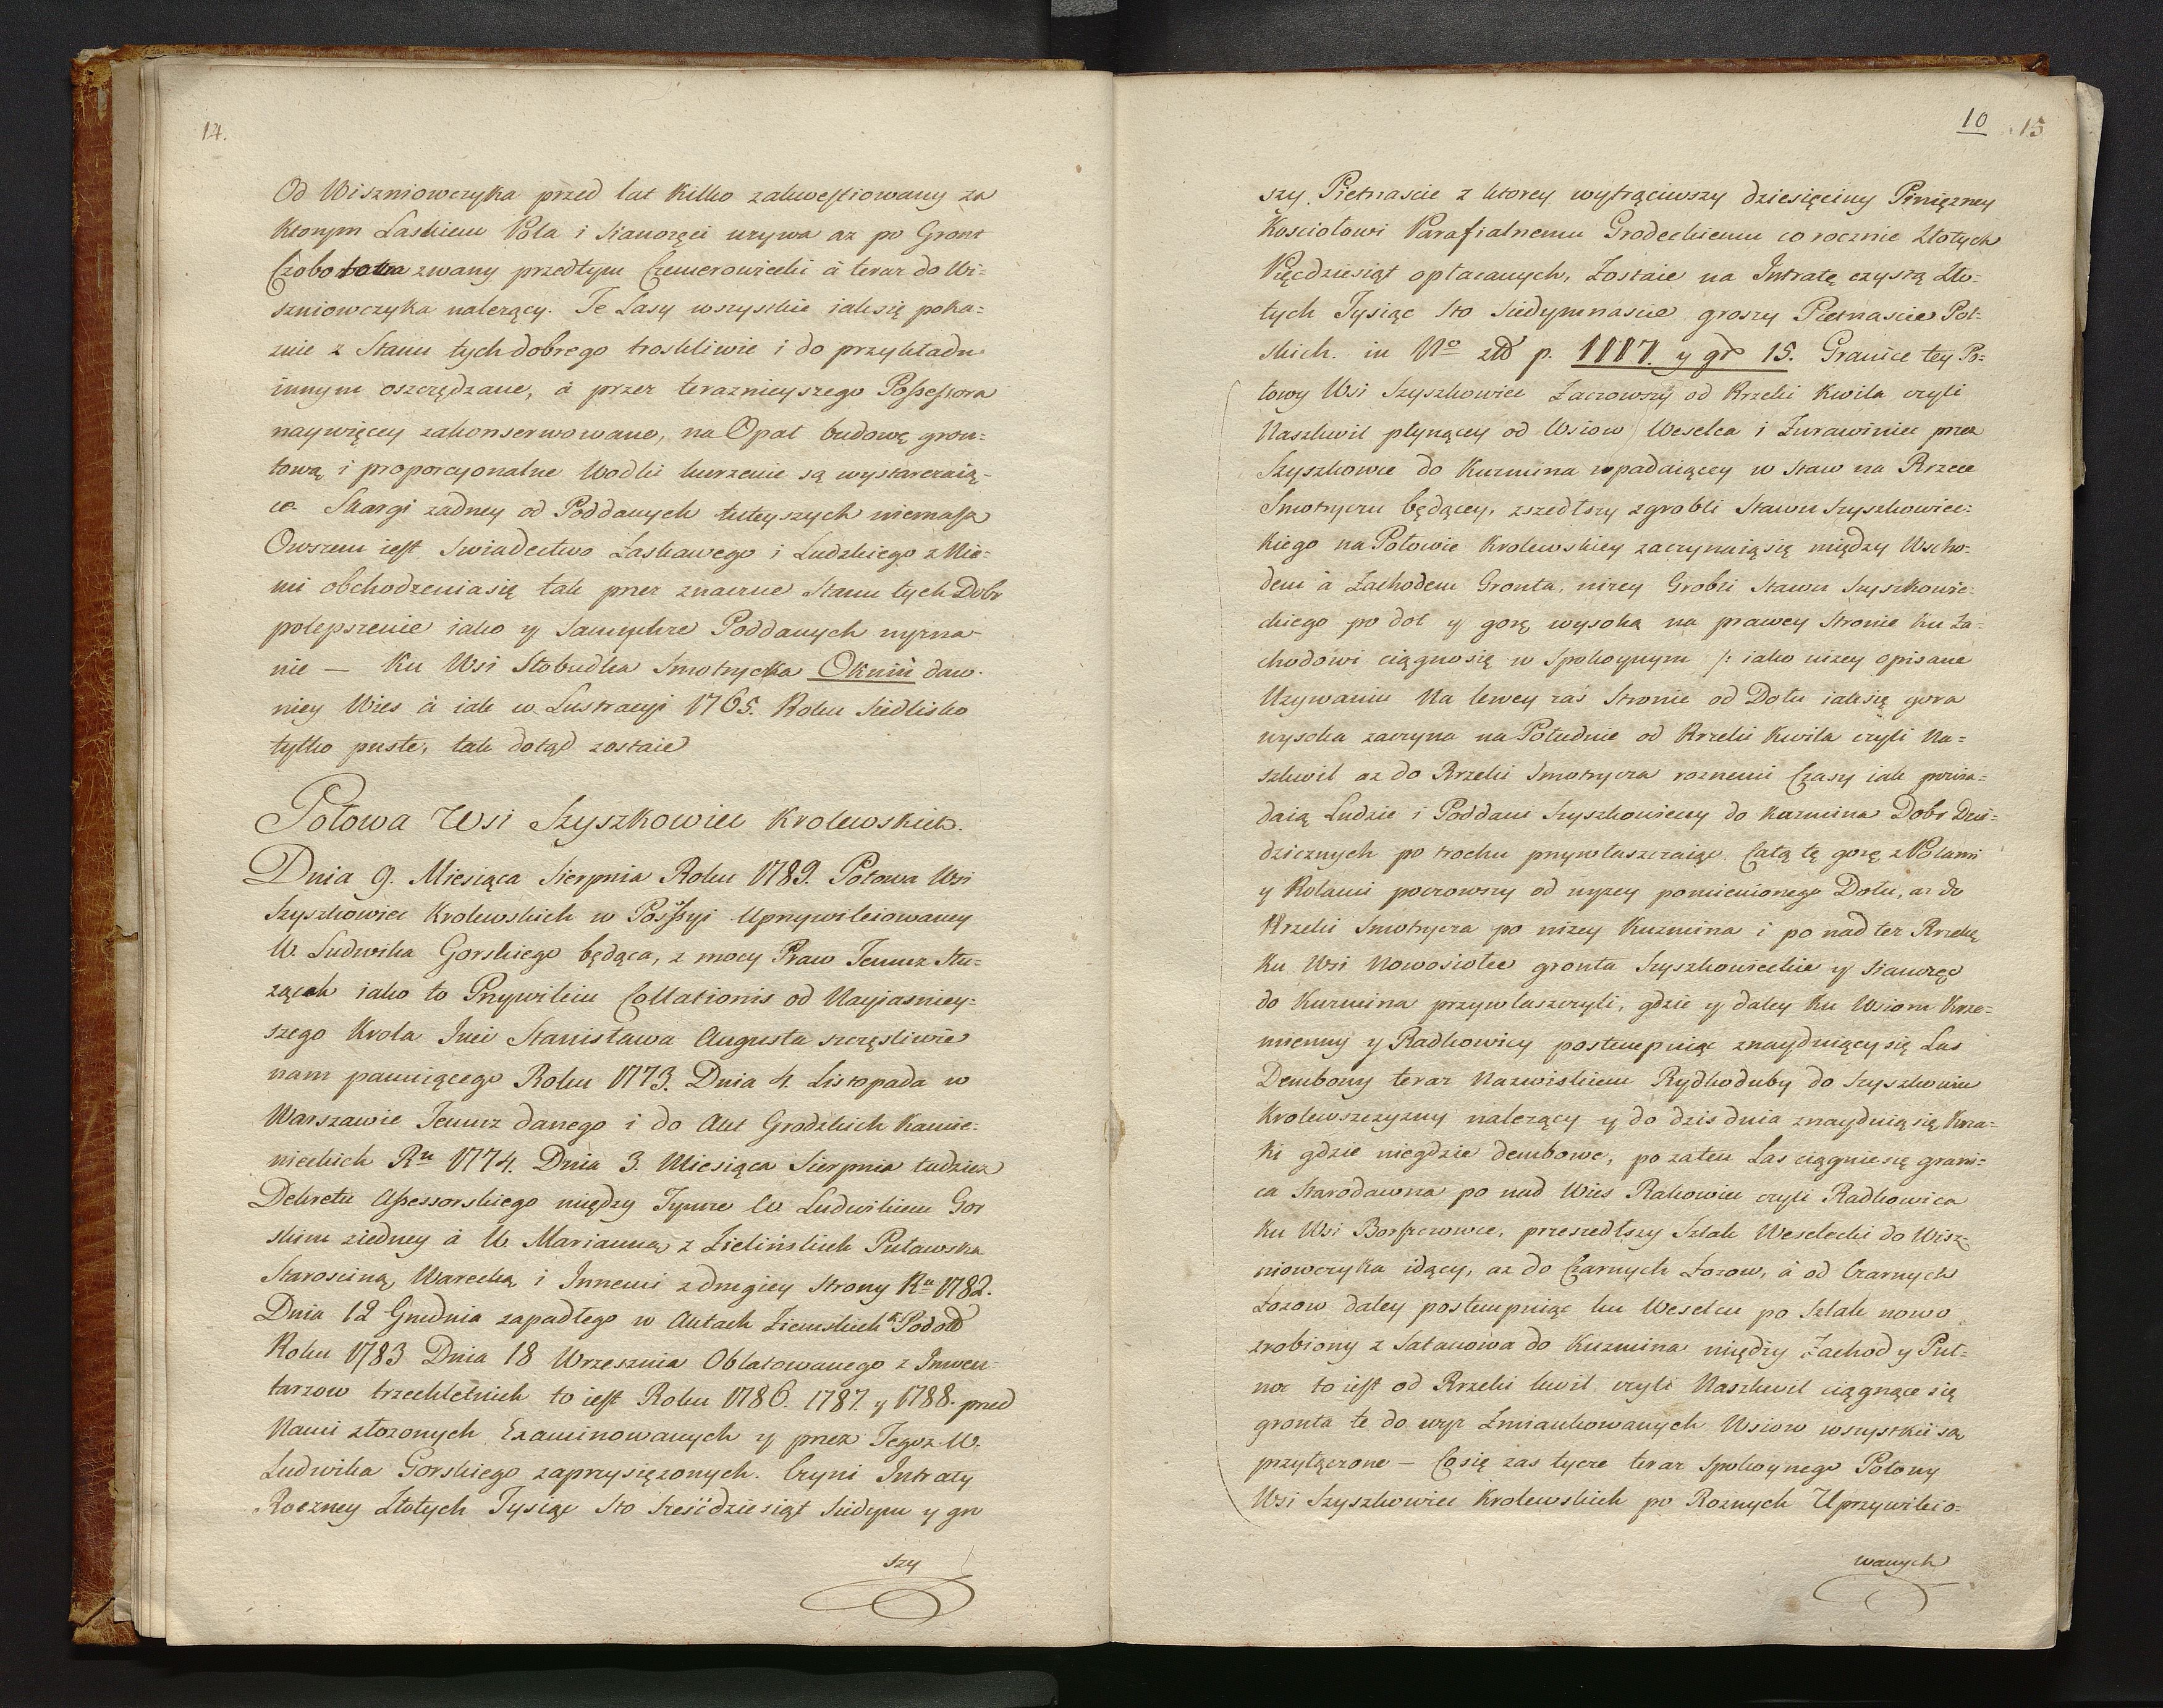 14.
Od Wiszniowczyka przed lat kilko zakwestiowany za
ktorym Laskiem Pola i Sianozęci uzywa az po Gront
zwany przedtym Czemerowiecki à teraz do Wi-
szniowczyka nalezący. Te Lasy wszystkie iak się poka=
znie z Stanu tych dobrego troskliwie i do przykładu
innym oszczędzane, à przez teraznieyszego Possessora
naywięcey zakonserwowane, na Opał budowę gron=
tową i proporcyonalne Wodki kurzenie są wystarczaią=
ce. Skargi zadney od Poddanych tuteyszych niemasz
Owszem iest Swiadectwo Łaskawego i Ludzkiego z Nie=
mi obchodzenia się tak przez znaczne Stanu tych Dobr
polepszenie iako y Samychze Poddanych wyzna-
nie — Ku Wsi Słobudka Smotrycka Oknin daw-
niey Wies à iak w Lustracyi 1765. Roku Siedlisko
tylko puste, tak dotąd zostaie
Połowa Wsi Szyszkowiec Krolewskich.
Dnia 9. Miesiąca Sierpnia Roku 1789. Połowa Wsi
Szyszkowiec Krolewskich w Possyi Uprzywileiowaney
W. Ludwika Gorskiego będąca, z mocy Praw Jemuz Słu=
zących iako to Przywileiu Collationis od Nayiasniey=
szego Krola Jmci Stanisława Augusta szczęsliwie
nam panuiącego Roku 1773. Dnia 4. Listopada w
Warszawie Jemuz danego i do Akt Grodzkich Kamie=
nieckich Ru 1774. Dnia 3. Miesiąca Sierpnia tudziez
Dekretu Assessorskiego między Tymze W. Ludwikiem Gor
skim z iedney à W. Marianną z Zielińskich Puławską
Starosciną Warecką i Innemi z drugiey Strony Ru 1782.
Dnia 12 Grudnia zapadłego w Aktach Ziemskich Podol
Roku 1783 Dnia 18 Wrzesznia Oblatowanego z Inwen=
tarzow trzechletnich to iest Roku 1786. 1787. y 1788. przed
Nami złozonych Examinowanych y przez Tegoz W.
Ludwika Gorskiego zaprzysięzonych. Czyni Intraty
Roczney Złotych Tysiąc Sto Sześćdziesiąt Siedym y gro
szy
10 15
szy Pietnascie z ktorey wytrąciwszy dziesięciny Pinięzney
Kosciołowi Parafialnemu Grodeckiemu co rocznie Złotych
Pięcdziesiąt opłacanych, Zostaie na Intratę czystą Zło=
tych Tysiąc Sto Siedymnascie groszy Pietnascie Pol=
skich. in No złł p. 1117. y gr 15. Granice tey Po=
łowy Wsi Szyszkowiec Zaczowszy od Rzeki Kwila czyli
Naszkwil płynącey od Wsiow Weselca i Zurawiniec przez
Szyszkowce do Kuzmina wpadaiącey w Staw na Rzece
Smotryczu będącey, zszedłszy z grobli Stawu Szyszkowiec=
kiego na Połowie Krolewskiey zaczynaią się między Wscho=
dem à Zachodem Gronta, nizey Grobli Stawu Szyszkowie=
ckiego po doł y gorę wysoką na prawey Stronie Ku Za=
chodowi ciągno się w Spokoynym /: iako nizey opisane
Uzywaniu Na lewey zaś Stronie od Dołu iak się gora
wysoka zaczyna na Południe od Rzeki Kwila czyli Na=
szkwil az do Rzeki Smotrycza roznemi Czasy iak powia=
daią Ludzie i Poddani Szyszkowieccy do Kuzmina Dobr Dzie=
dzicznych po trochu przywłaszczaiąc Całą tę gorę z Polami
y Rolami poczowszy od wyzey pomienionego Dołu, az do
Rzeki Smotrycza po nizey Kuzmina i po nad tez Rzekę
Ku Wsi Nowosiołce gronta Szyszkowieckie y Sianozęc
do Kuzmina przywłaszczyli, gdzie y daley Ku Wsiom Krze=
mienny y Radkowicy postempuiąc znayduiący się Las
Dembony teraz Nazwiskiem Rydkoduby do Szyszkowiec
Krolewszczyzny nalezący y do dzis dnia znayduią się Krza=
ki gdzie niegdzie dembowe, po zatem Las ciągnie się grani=
ca Starodawna po nad Wies Rakowiec czyli Radkowica
Ku Wsi Borszczowce, przeszedłszy Szlak Weselecki do Wisz=
niowczyka idący, az do Czarnych Łozow, à od Czarnych
Łozow daley postempuiąc ku Weselcu po Szlak nowo
zrobiony z Satanowa do Kuzmina między Zachod y Puł=
noc to iest od Rzeki kwil czyli Naszkwil ciągnące się
gronta te do wyz Zmiankowanych Wsiow wszystkie są
przyłączone — Co się zas tycze teraz Spokoynego Połowy
Wsi Szyszkowiec Krolewskich po Roznych Uprzywileio=
wanych